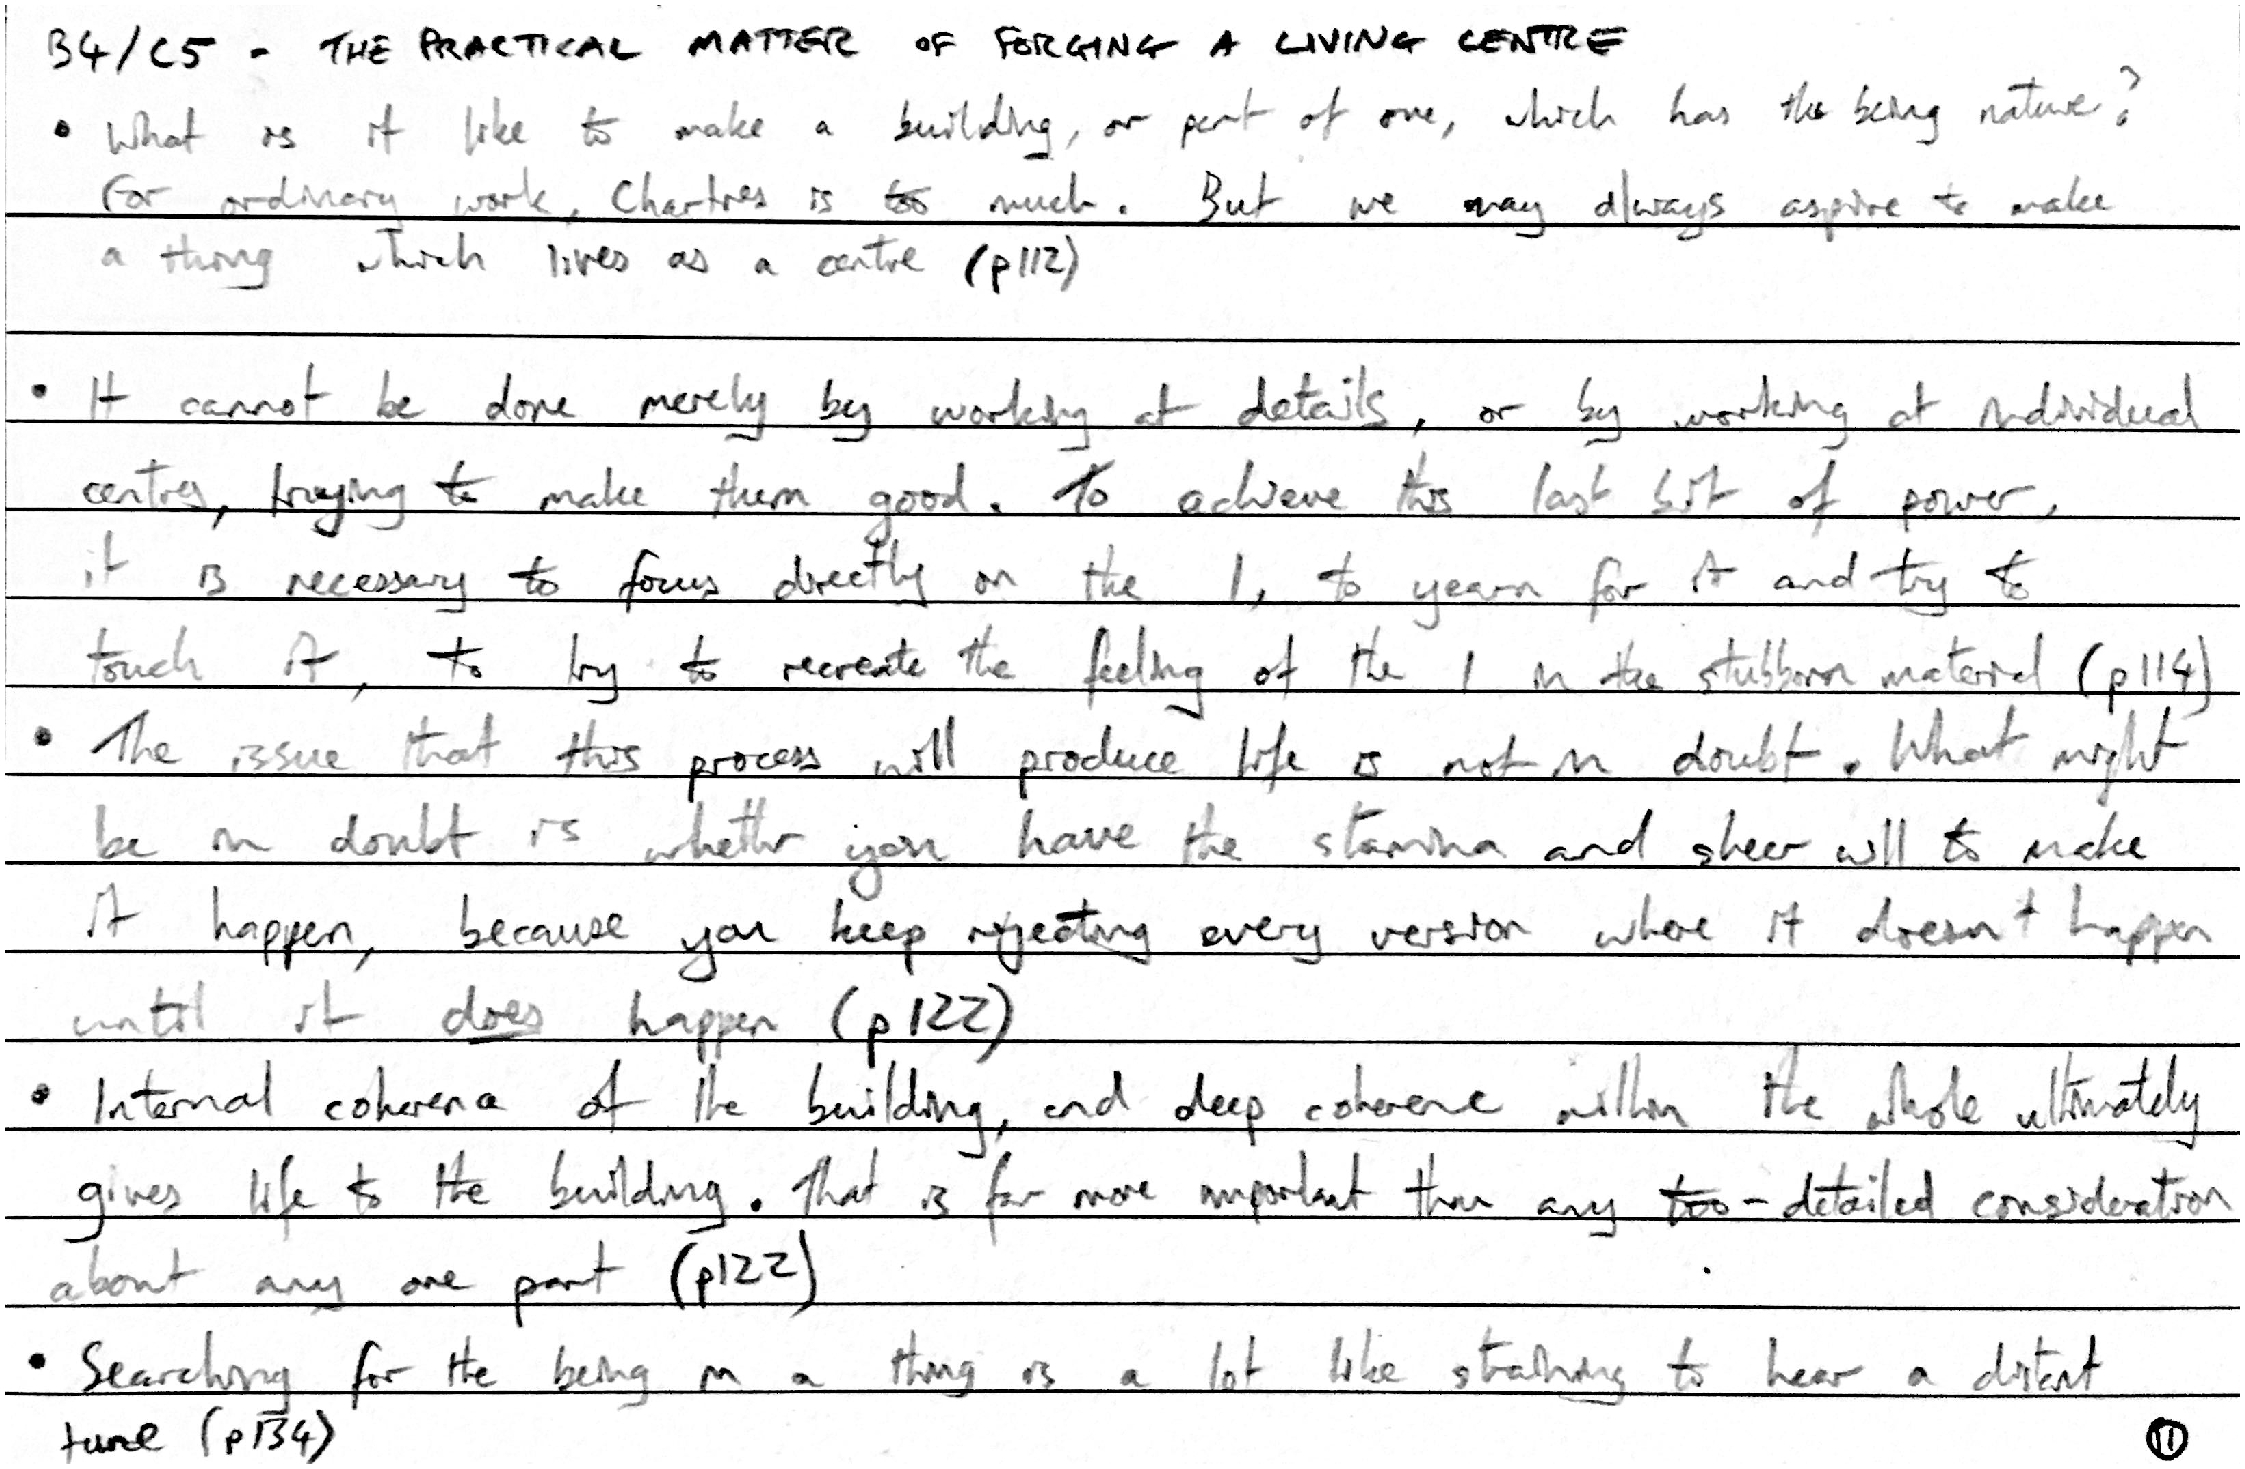 B4/C5 - THE PRACTICAL MATTER OF FORGING A LIVING CENTRE
• What is it like to make a building, or part of one, which has the being nature?
For ordinary work, Chartres is too much. But we may always aspire to make
a thing which lives as a centre (p112)
• It cannot be done merely by working at details, or by working at individual
centres, trying to make them good. To achieve this last bit of power,
it is necessary to focus directly on the I, to yearn for it and try to
touch it, to try to recreate the feeling of the I in the stubborn material (p114)
• The issue that this process will produce life is not in doubt. What might
be in doubt is whether you have the stamina and sheer will to make
it happen, because you keep rejecting every version where it doesn't happen
until it does happen (p122)
• Internal coherence of the building, and deep coherence within the whole ultimately
gives life to the building. That is far more important than any too-detailed consideration
about any one part (p122)
• Searching for the being in a thing is a lot like straining to hear a distant
tune (p134)
11